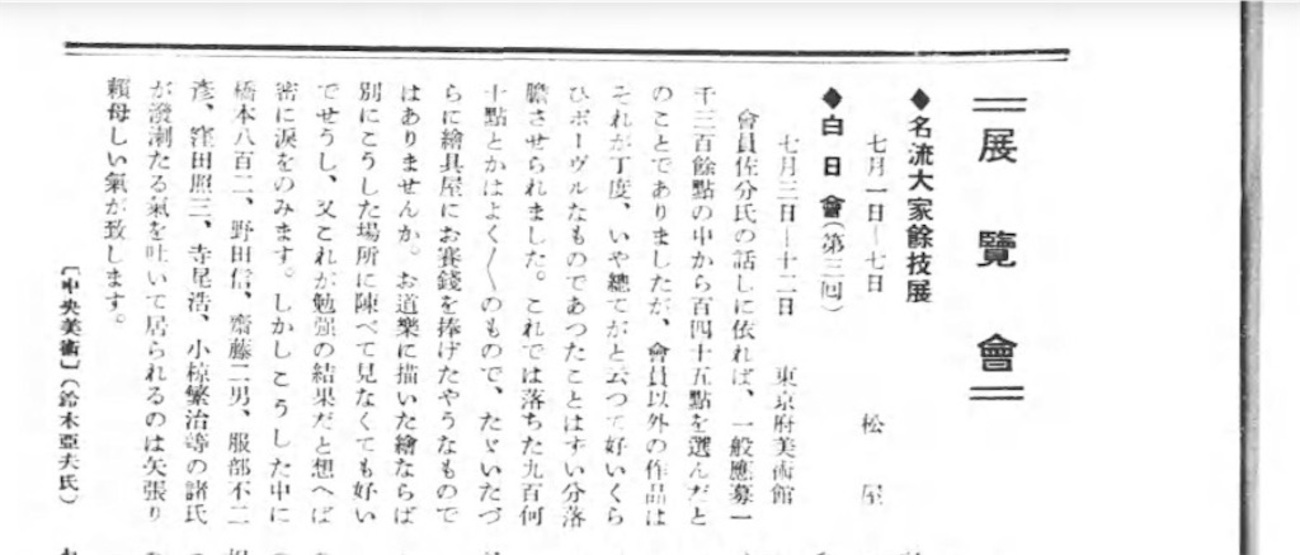 展覽會
◆名流大家餘技展
七月一日―七日 松屋
◆白日會(第三回)
七月三日―十二日 東京府美術館
會員佐分氏の話しに依れば、一般應募一
千三百餘點の中から百四十五點を選んだと
のことでありましたが、會員以外の作品は
それが丁度、いや總てがと云つて好いくら
ひポーヴルなものであつたことはずい分落
膽させられました。これでは落ちた九百何
十點とかはよく〳〵のもので、たゞいたづ
らに繪具屋にお賽錢を捧げたやうなもので
はありませんか。お道樂に描いた繪ならば
別にこうした場所に陳べて見なくても好い
でせうし、又これが勉强の結果だと想へば
密に淚をのみます。しかしこうした中に
橋本八百二、野田信、齋藤二男、服部不二
彥、窪田照三、寺尾浩、小椋繁治等の諸氏
が潑溂たる氣を吐いて居られるのは矢張り
賴母しい氣が致します。
〔中央美術〕(鈴木亞夫氏)